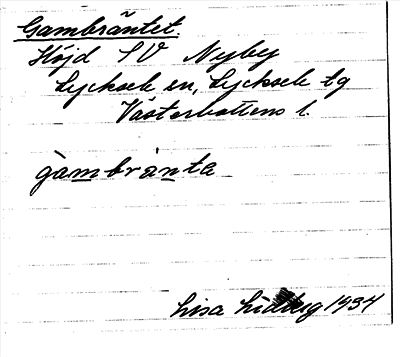 Gambräntet.
Höjd SV Nyby
Lycksele sn, Lycksele tg
Västerbottens l.
gàmbránta
Lisa Lidberg 1934